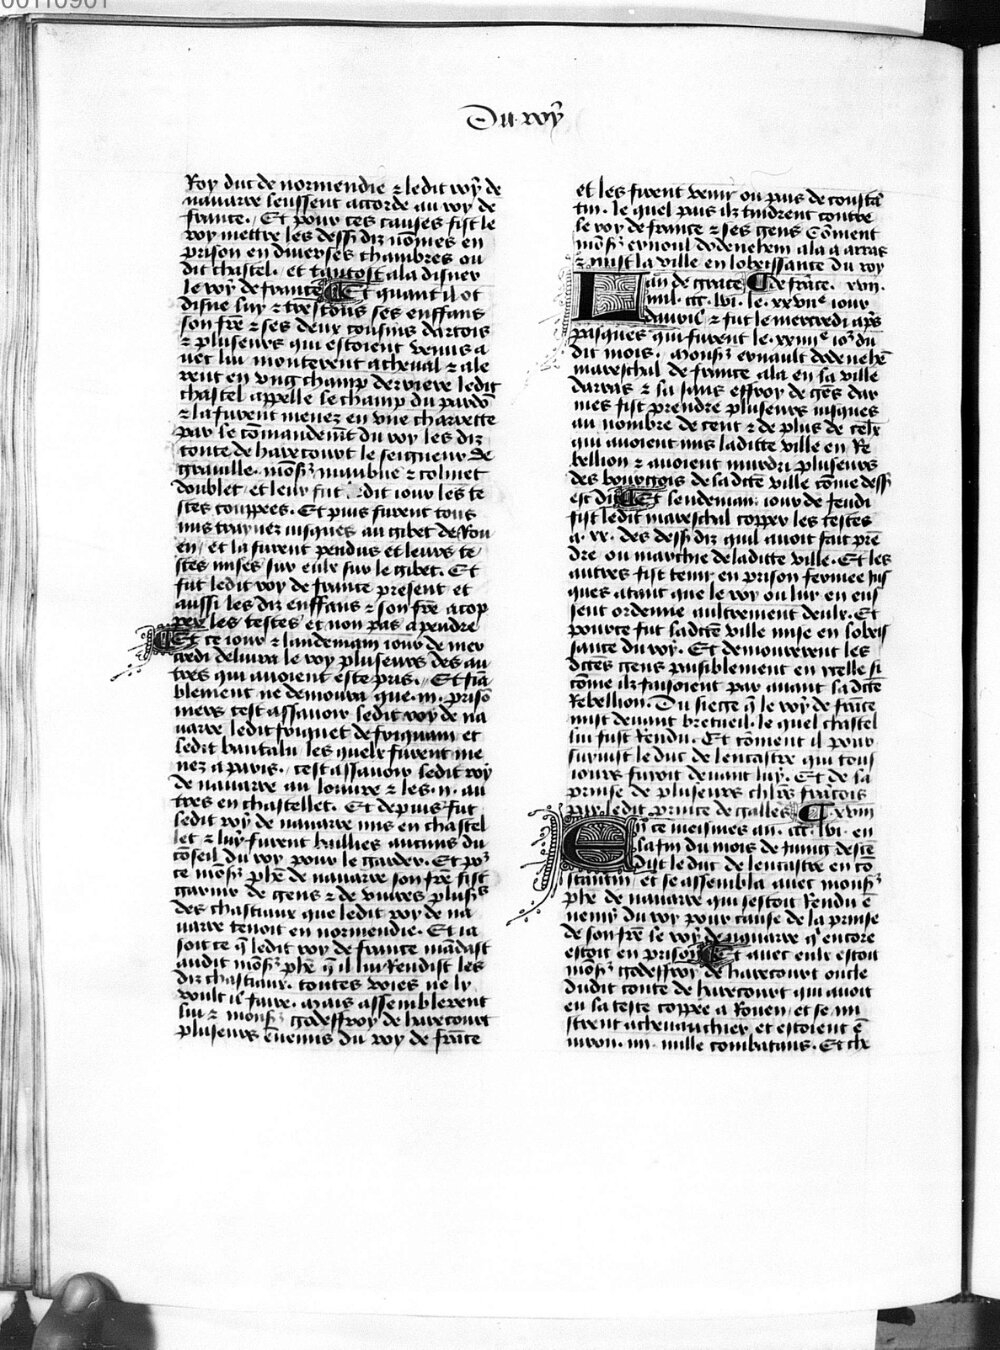 00110901
Du roy
Roy duc de normendie ⁊ ledit roy de
nauarre leussent accorde au roy de
france. Et pour ces causes fist le
roy mettre les dess͛ diz nōmes en
prison en diuerses chambres ou
dit chastel. et tantost ala disner
le roy de france Et quant il ot
disne luy ⁊ trestous ses enffans
son fr̄e ⁊ ses deux cousins dartois
⁊ plusieurs qui estoient venus a
uec lui monterent a cheual ⁊ ale
rent en vng champ derriere ledit
chastel appelle le champ du pardō
⁊ la furent menez en vne charrette
par le cōmandemēt du roy les diz
conte de harecourt le seigneur de
grauille. mōs͛ maubue ⁊ colinet
doublet. et leur fut dit iour les te
stes couppees. Et puis furent tous
mis traynez iusques au gibet de Rou
en/ et la furent pendus et leurs te
stes mises sur eulx sur le gibet. Et
fut ledit roy de france present et
aussi les diz enffans ⁊ son fr̄e a cop
per les testes et non pas a pendre
Et ce iour ⁊ landemain iour de mer
credi deliura le roy plusieurs des au
tres qui auoient este pris. Et fia
blement ne demoura que .iii. prisō
niers cest assauoir ledit roy de na
uarre ledit friquet de friquam et
ledit bantalu les quelx furent me
nez a paris. cest assauoir ledit roy
de nauarre au louure ⁊ les .ii. au
tres en chastellet. Et depuis fut
ledit roy de nauarre mis en chastel
let ⁊ luy furent baillies aucuns du
cōseil du roy pour le garder. Et pʳ
ce mōs͛ phē de nauarre son fr̄e fist
garnir de gens ⁊ de viures plusʳˢ
des chastiaux que ledit roy de na
uarre tenoit en normendie. Et ia
soit ce q̄ ledit roy de france mādast
audit mōs͛ phē q̄ il lui Rendist les
diz chastiaux. toutes voies ne ly
voult il faire. mais assemblerent
lui ⁊ mons͛ godeffroy de harecourt
plusieurs ēnemis du roy de frāce
et les firent venir ou pais de consta
tin. le quel pais ilz tindrent contre
le roy de france ⁊ ses gens Cōment
mōs͛ ernoul dodenehem ala a arras
⁊ mist la ville en lobeissance du roy
Lan de grace de frāce. xvii.
mil. ccc. lvi. le. xxviiᵉ iour
dauril ⁊ fut le mercredi ap̄s
pasques qui furent le. xxiiiiᵉ ioʳ du
dit mois. Mons͛ ernault dodenehē
mareschal de france ala en la ville
darras ⁊ la sans effroy de gēs dar
mes fist prendre plusieurs iusques
au nombre de cent ⁊ de plus de celx
qui auoient mis laditte ville en Re
bellion ⁊ auoient murdri plusieurs
des bourgois de ladc̄e ville cōme dess͛
est dit Et lendemain iour de jeudi
fist ledit mareschal copper les testes
a .xx. des dess͛ diz quil auoit fait prē
dre ou marchie de laditte ville. Et les
autres fist tenir en prison fermee jus
ques atant que le roy ou lui en eus
sent ordenne aultrement deulx. Et
pource fut ladc̄e ville mise en lobeis
sance du roy. Et demourerent les
dc̄es gens paisiblement en ycelle si
cōme ilz faisoient par auant ladc̄e
Rebellion. Du siege q̄ le roy de frāce
mist deuant bretueil. le quel chastel
lui fust Rendu. Et cōment il pour
suiuist le duc de lencastre qui tous
iours fuioit deuant luy. Et de la
prinse de plusieurs chl̄rs frācois
par ledit prince de galles xviii
En ce meismes an. ccc. lvi. en
la fin du mois de juing descē
dist le duc de lencastre en cō
stantin/ et se assembla auec mons͛
phē de nauarre qui sestoit Rendu ē
nemy du roy pour cause de la prinse
de son fr̄e le roy de nauarre qͥ encore
estoit en prison Et auec eulx estoit
mōs͛ godeffroy de harecourt oncle
dudit conte de harecourt qui auoit
eu la teste coppee a Rouen/ et se mi
strent a cheuauchier/ et estoient ē
uiron. iiii. mille combatans. Et che